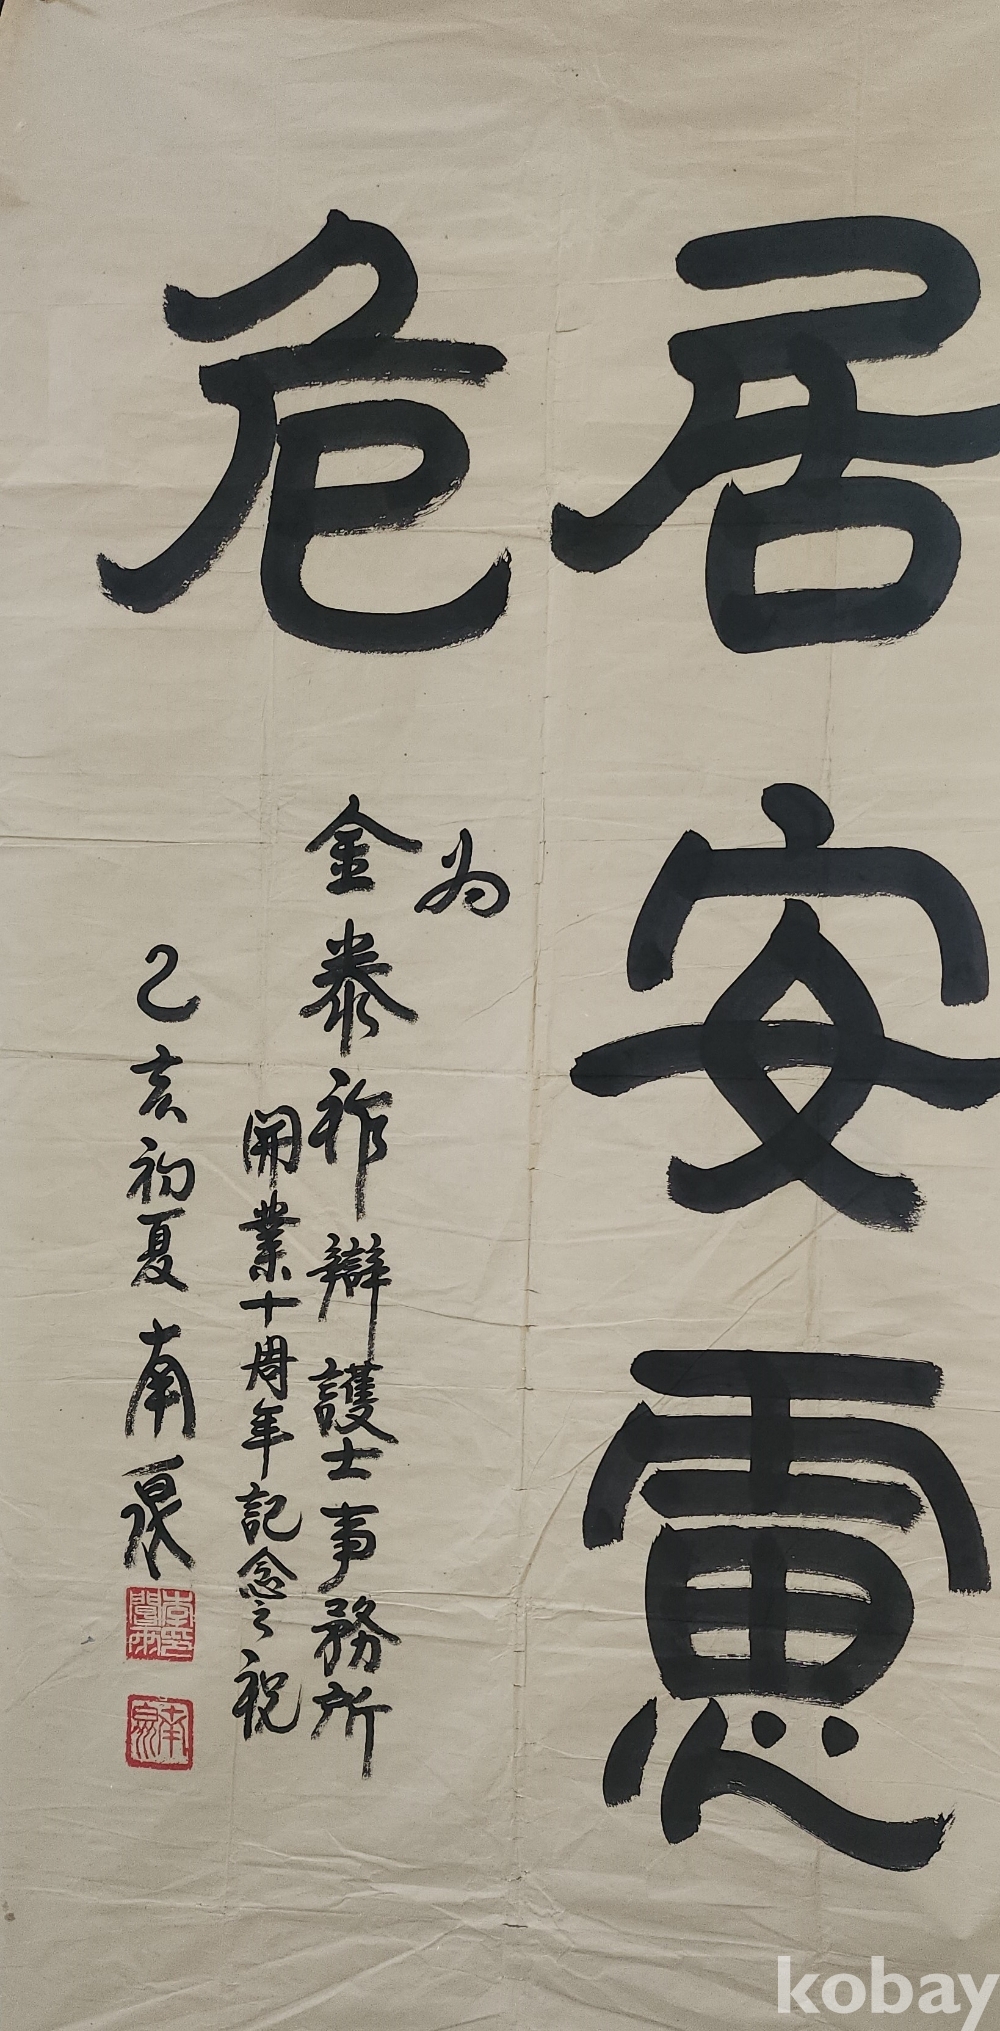 居安慮
危
為
金泰祚辯護士事務所
開業十周年記念之祝
乙亥初夏 南泉
南泉
kobay